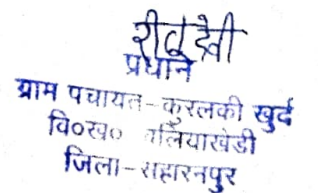 रीतु देवी
प्रधान
ग्राम पचायत-कुरलकी खुर्द
वि०ख० बलियाखेडी
जिला-सहारनपुर